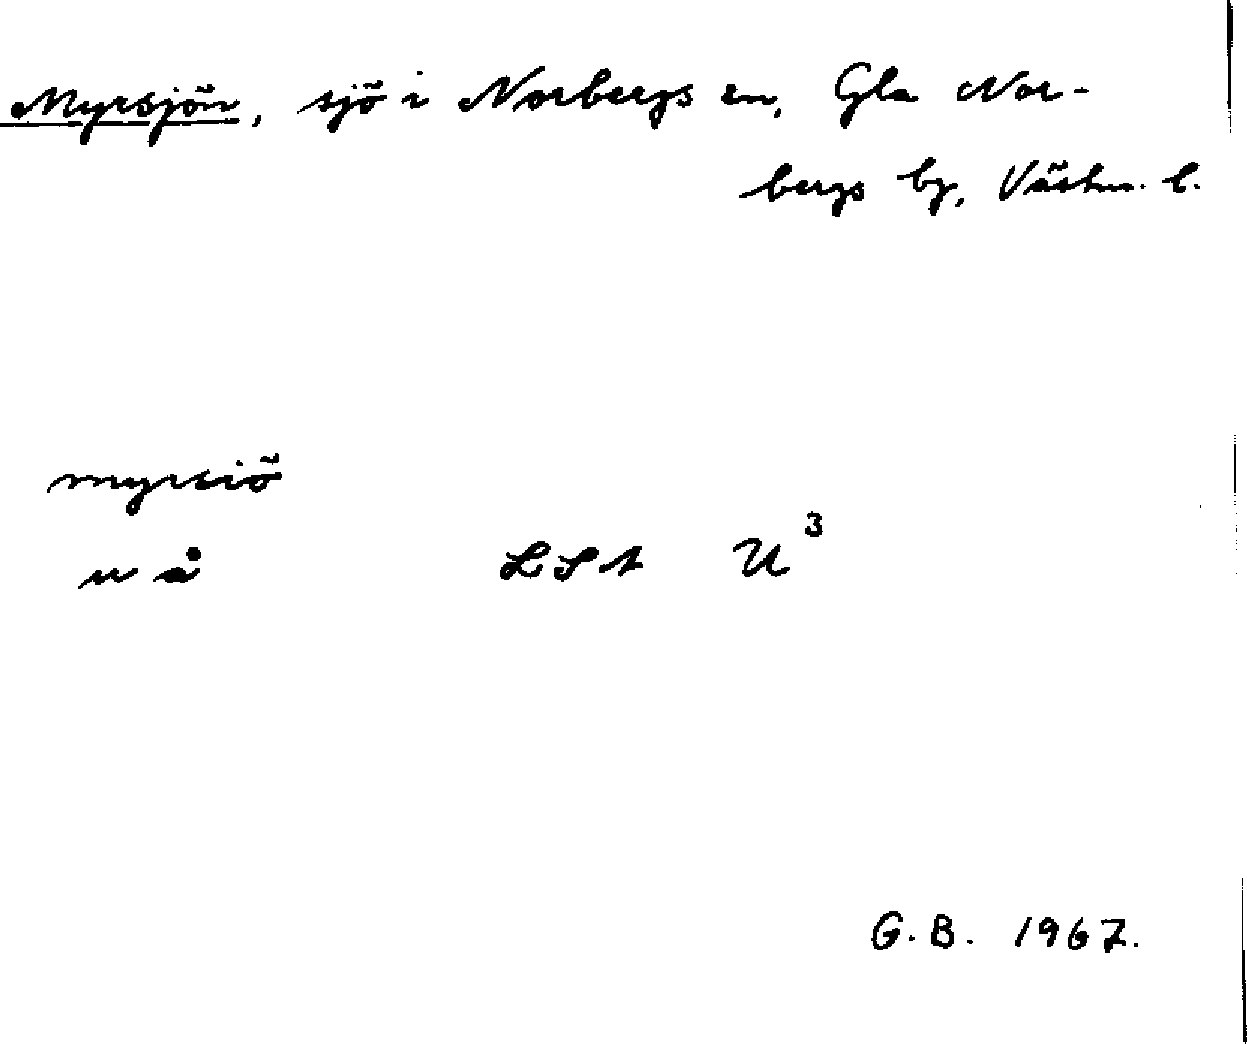 Myrsjön, sjö i Norbergs sn, Gla Nor-
bergs bg, Västm. l.
myrsiö
u å LSA U³
G.B. 1967.